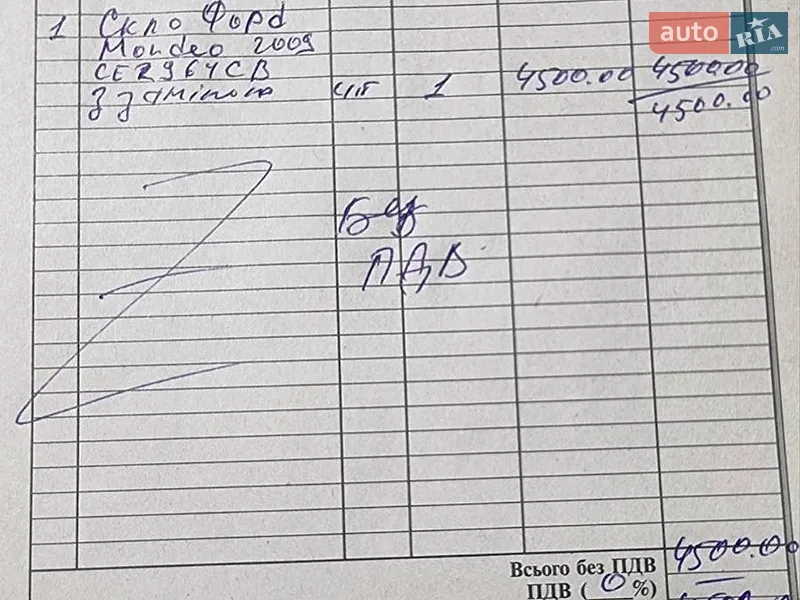 auto RIA .com
1 Скло Форd
Mondeo 2009
CER964CB
з заміною шт 1 4500.00 4500.00
4500.00
Без
ПДВ
Всього без ПДВ 4500.00
ПДВ ( 0 %) —